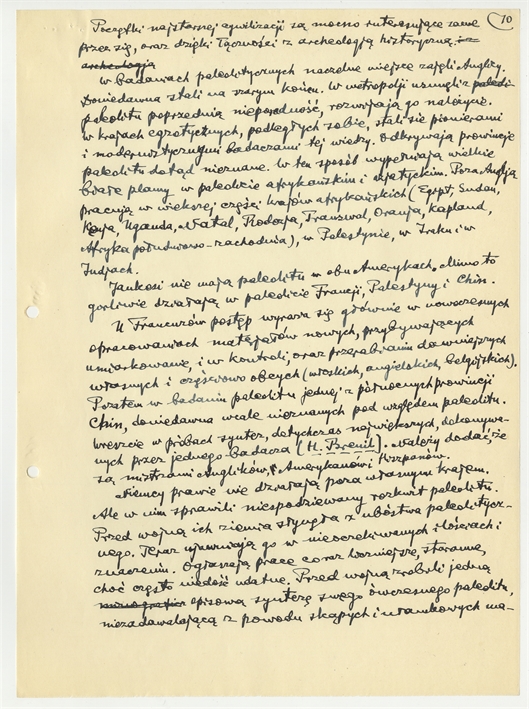 10
Początki najstarszej cywilizacji są mocno interesujące same
przez się, oraz dzięki łączności z archeologją historyczną.
archeologją
W badaniach paleolitycznych naczelne miejsce zajęli Anglicy.
Doniedawna stali na szarym końcu. W metropolji usunęli z
paleolitu poprzednią nieporadność, rozwijają go należycie.
W krajach egzotycznych, podległych sobie, stali się pionierami
i modernistycznymi badaczami tej wiedzy. Odkrywają prowincje
paleolitu dotąd nieznane. W ten sposób wypełniają wielkie
białe plamy w paleolicie afrykańskim i azjatyckim. Poza Anglją
pracują w większej części krajów afrykańskich (Egypt, Sudan,
Kenja, Uganda, Natal, Rodezja, Transwal, Oranja, Kapland,
Afryka południowo-zachodnia), w Palestynie, w Iraku i w
Indjach.
Jankesi nie mają paleolitu w obu Amerykach. Mimo to
gorliwie działają w paleolicie Francji, Palestyny i Chin.
U Francuzów postęp wyraża się głównie w nowoczesnych
opracowaniach materjałów nowych, przybywających
umiarkowanie, i w kontroli, oraz przerabianiu dawniejszych
własnych i częściowo obcych (włoskich, angielskich, belgijskich).
Pozatem w badaniu paleolitu jednej z północnych prowincji
Chin, doniedawna wcale nieznanych pod względem paleolitu.
Wreszcie w próbach syntez, dotychczas największych, dokonywa-
nych przez jednego badacza (H. Breuil). Należy dodać, że
są mistrzami Anglików, Amerykanów i Hiszpanów.
Niemcy prawie nie działają poza własnym krajem.
Ale w nim sprawili niespodziewany rozkwit paleolitu.
Przed wojną ich ziemia słynęła z ubóstwa paleolitycz-
nego. Teraz ujawniają go w nieoczekiwanych ilościach i
znaczeniu. Ogłaszają prace coraz ważniejsze, staranne,
choć często niedość udatne. Przed wojną zrobili jedną
opisową syntezę swego ówczesnego paleolitu,
niezadawalającą z powodu skąpych i ułamkowych ma-